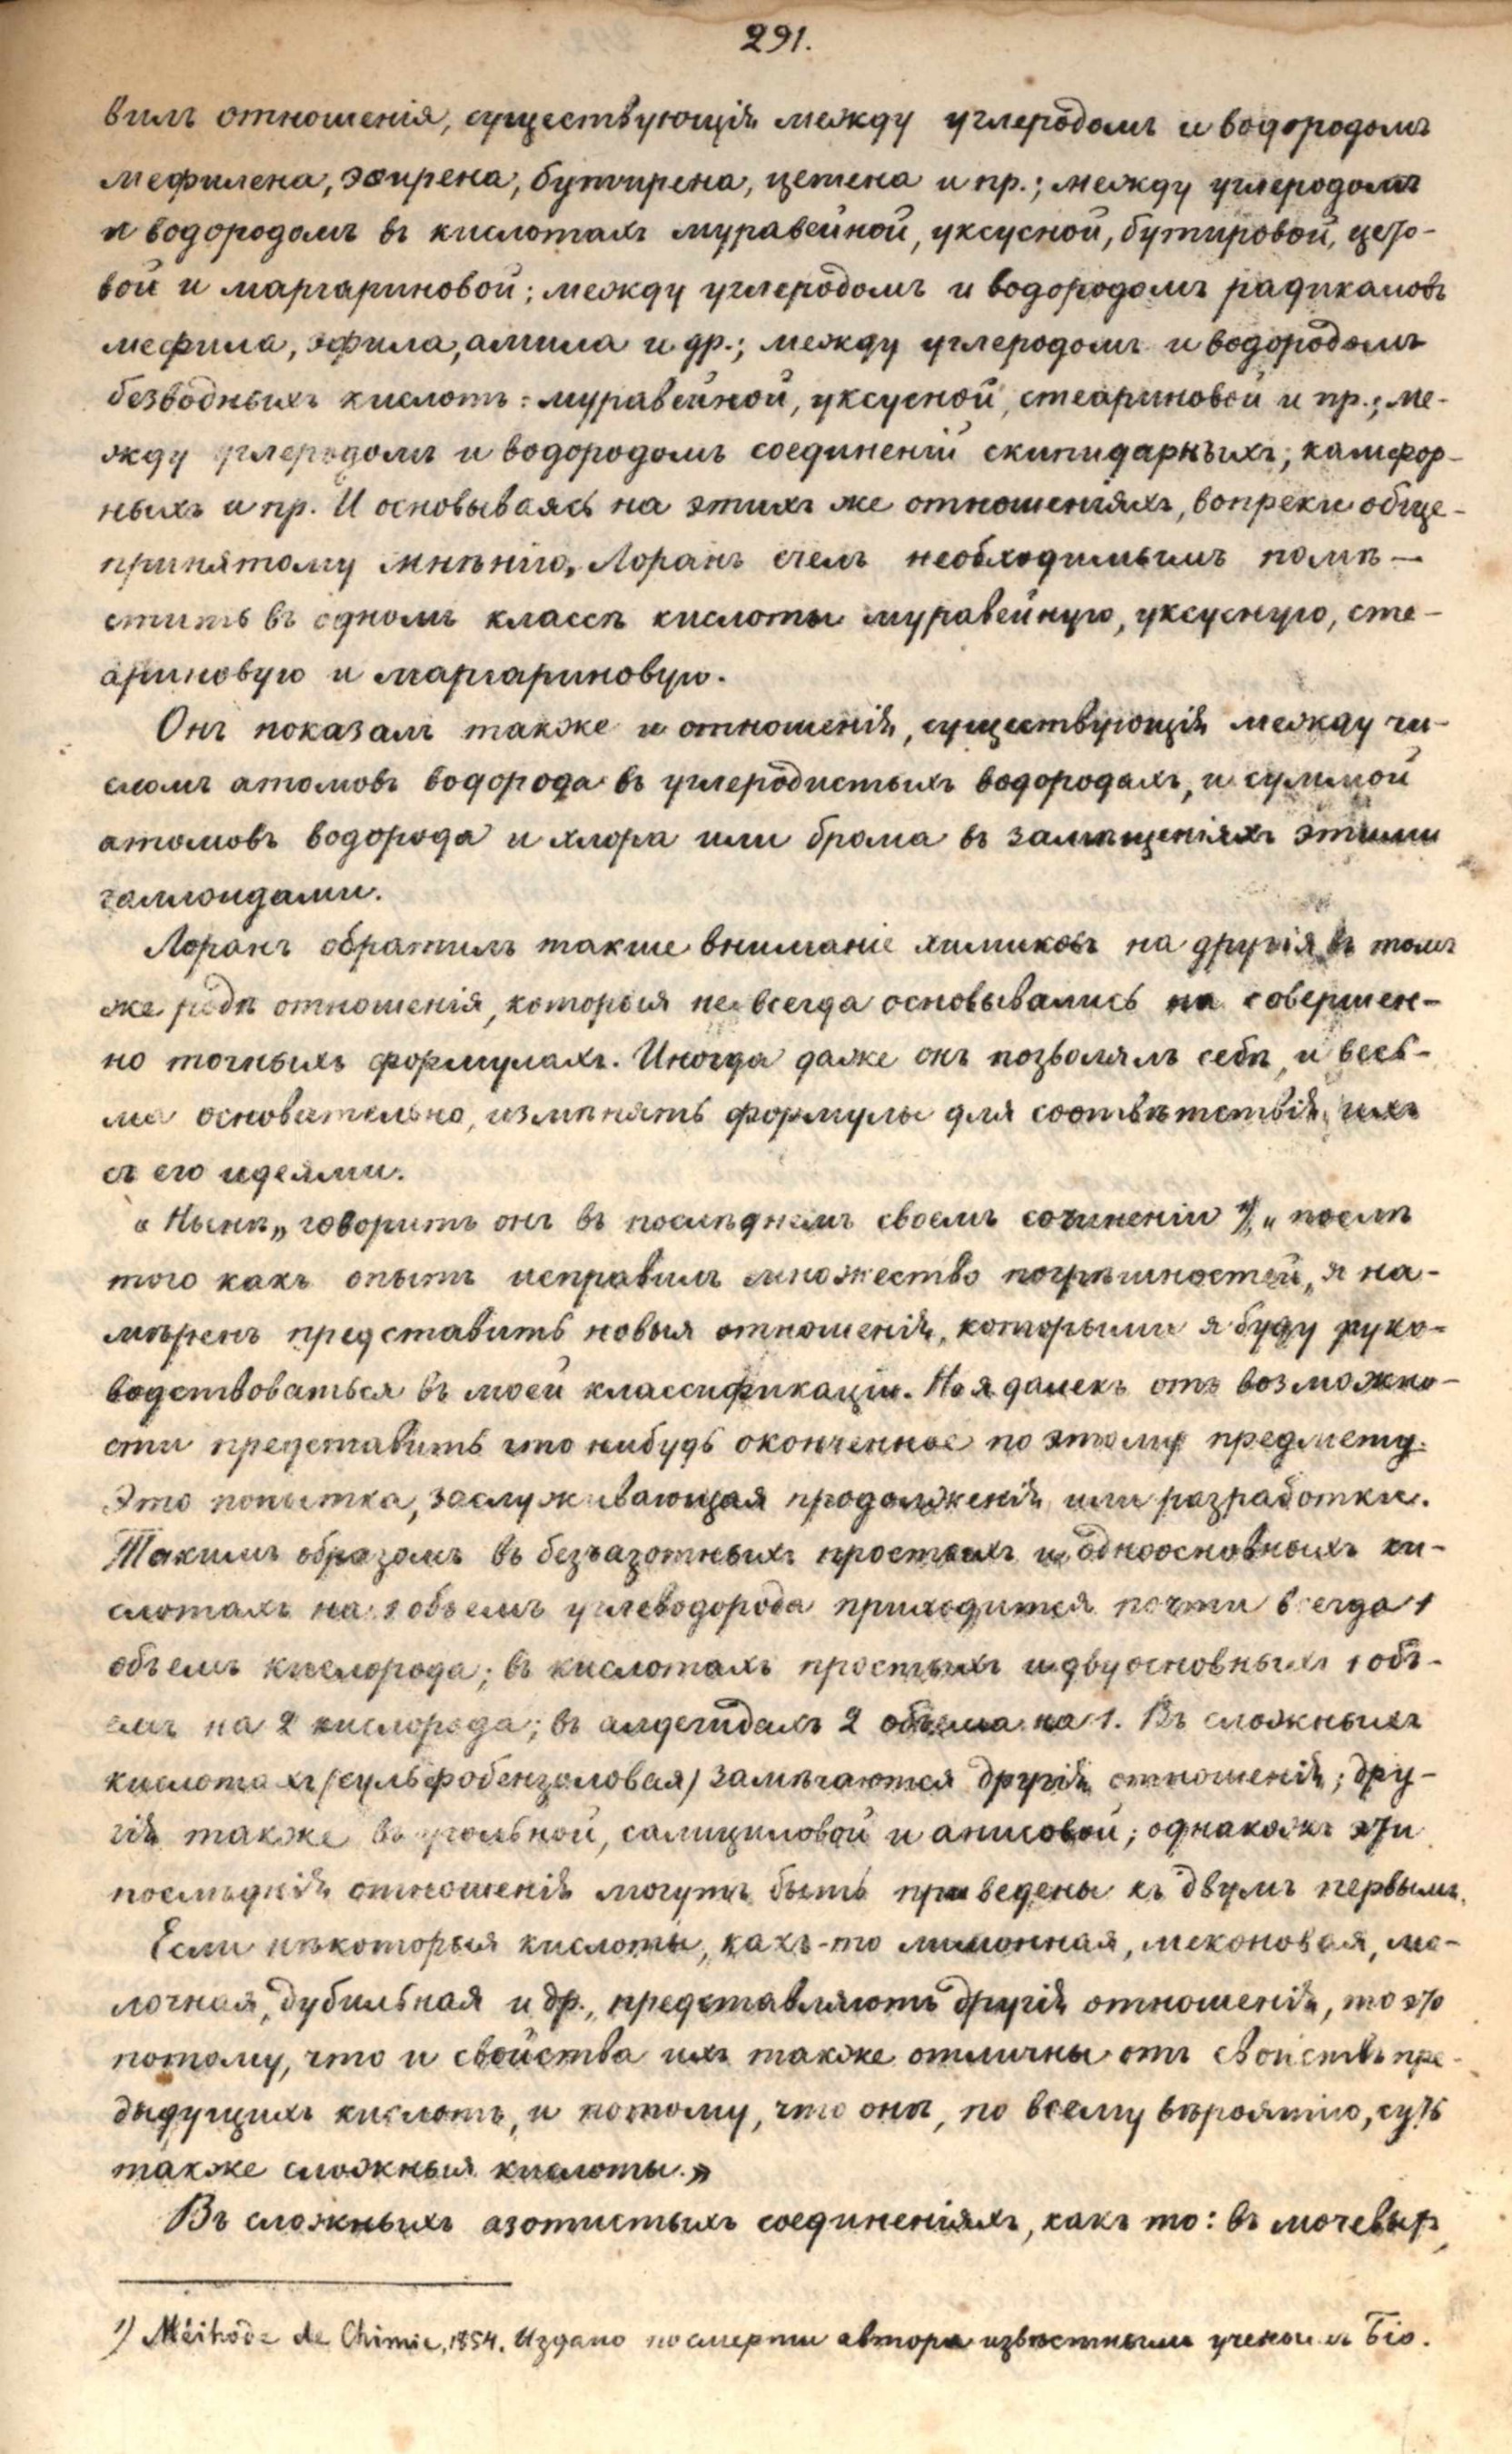 291.
вилъ отношенія, существующія между углеродомъ и водородомъ
мефилена, эѳирена, бутирена, цетена и пр.; между углеродомъ
и водородомъ въ кислотахъ муравейной, уксусной, бутировой, цето-
вой и маргариновой; между углеродомъ и водородомъ радикаловъ
мефила, эфила, амила и др.; между углеродомъ и водородомъ
безводныхъ кислотъ: муравейной, уксусной, стеариновой и пр.; ме-
жду углеродомъ и водородомъ соединеній скипидарныхъ, камфор-
ныхъ и пр. И основываясь на этихъ же отношеніяхъ, вопреки обще-
принятому мнѣнію, Лоранъ счелъ необходимымъ помѣ-
стить въ одномъ классѣ кислоты муравейную, уксусную, сте-
ариновую и маргариновую.
Онъ показалъ также и отношенія, существующія между чи-
сломъ атомовъ водорода въ углеродистыхъ водородахъ, и суммой
атомовъ водорода и хлора или брома въ замѣщеніяхъ этими
галлоидами.
Лоранъ обратилъ также вниманіе химиковъ на другія въ томъ
же родѣ отношенія, которыя не всегда основывались на совершен-
но точныхъ формулахъ. Иногда даже онъ позволялъ себѣ, и весь-
ма основательно, измѣнять формулы для соотвѣтствія ихъ
съ его идеями.
"Нынѣ„ говоритъ онъ въ послѣднемъ своемъ сочиненіи 1), „послѣ
того какъ опытъ исправилъ множество погрѣшностей, я на-
мѣренъ представить новыя отношенія, которыми я буду руко-
водствоваться въ моей классификаціи. Но я далекъ отъ возможно-
сти представить что нибудь оконченное по этому предмету.
Это попытка, заслуживающая продолженія или разработки.
Такимъ образомъ въ безъазотныхъ простыхъ и одноосновныхъ ки-
слотахъ на 1 объемъ углеводорода приходится почти всегда 1
объемъ кислорода; въ кислотахъ простыхъ и двуосновныхъ 1 объ-
емъ на 2 кислорода; въ алдегидахъ 2 объема на 1. Въ сложныхъ
кислотахъ (сульфобензоловая) замѣчаются другія отношенія; дру-
гія также въ угольной, салициловой и анисовой; однакожъ эти
послѣднія отношенія могутъ быть приведены къ двумъ первымъ.
Если нѣкоторыя кислоты, какъ-то лимонная, меконовая, мо-
лочная, дубильная и др., представляютъ другія отношенія, то это
потому, что и свойства ихъ также отличны отъ свойствъ пре-
дыдущихъ кислотъ, и потому, что онѣ, по всему вѣроятію, суть
также сложныя кислоты.»
Въ сложныхъ азотистыхъ соединеніяхъ, какъ то: въ мочевы-
1) Méthode de Chimie, 1854. Издано по смерти автора извѣстнымъ ученымъ Біо.